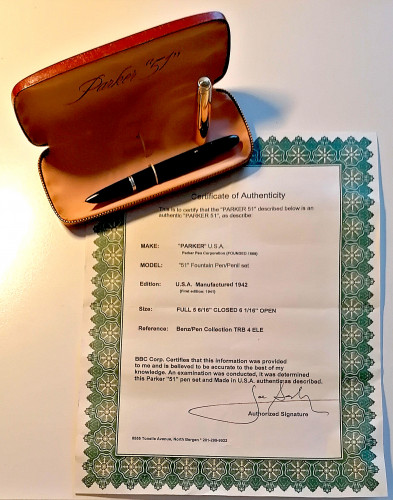 Parker "51"
Certificate of Authenticity
This is to certify that the "PARKER 51" described below is an
authentic "PARKER 51", as describe:
MAKE: "PARKER" U.S.A.
Parker Pen Corporation (FOUNDED 1888)
MODEL: "51" Fountain Pen/Penil set
Edition: U.S.A. Manufactured 1942
(First edition: 1941)
Size: FULL 5 6/16" CLOSED 6 1/16" OPEN
Reference: Benz/Pen Collection TRB 4 ELE
BBC Corp. Certifies that this information was provided
to me and is believed to be accurate to the best of my
knowledge. An examination was conducted, it was determined
this Parker "51" pen set and Made in U.S.A. authentic as described.
Authorized Signature
Tonelle Avenue, North Bergen *